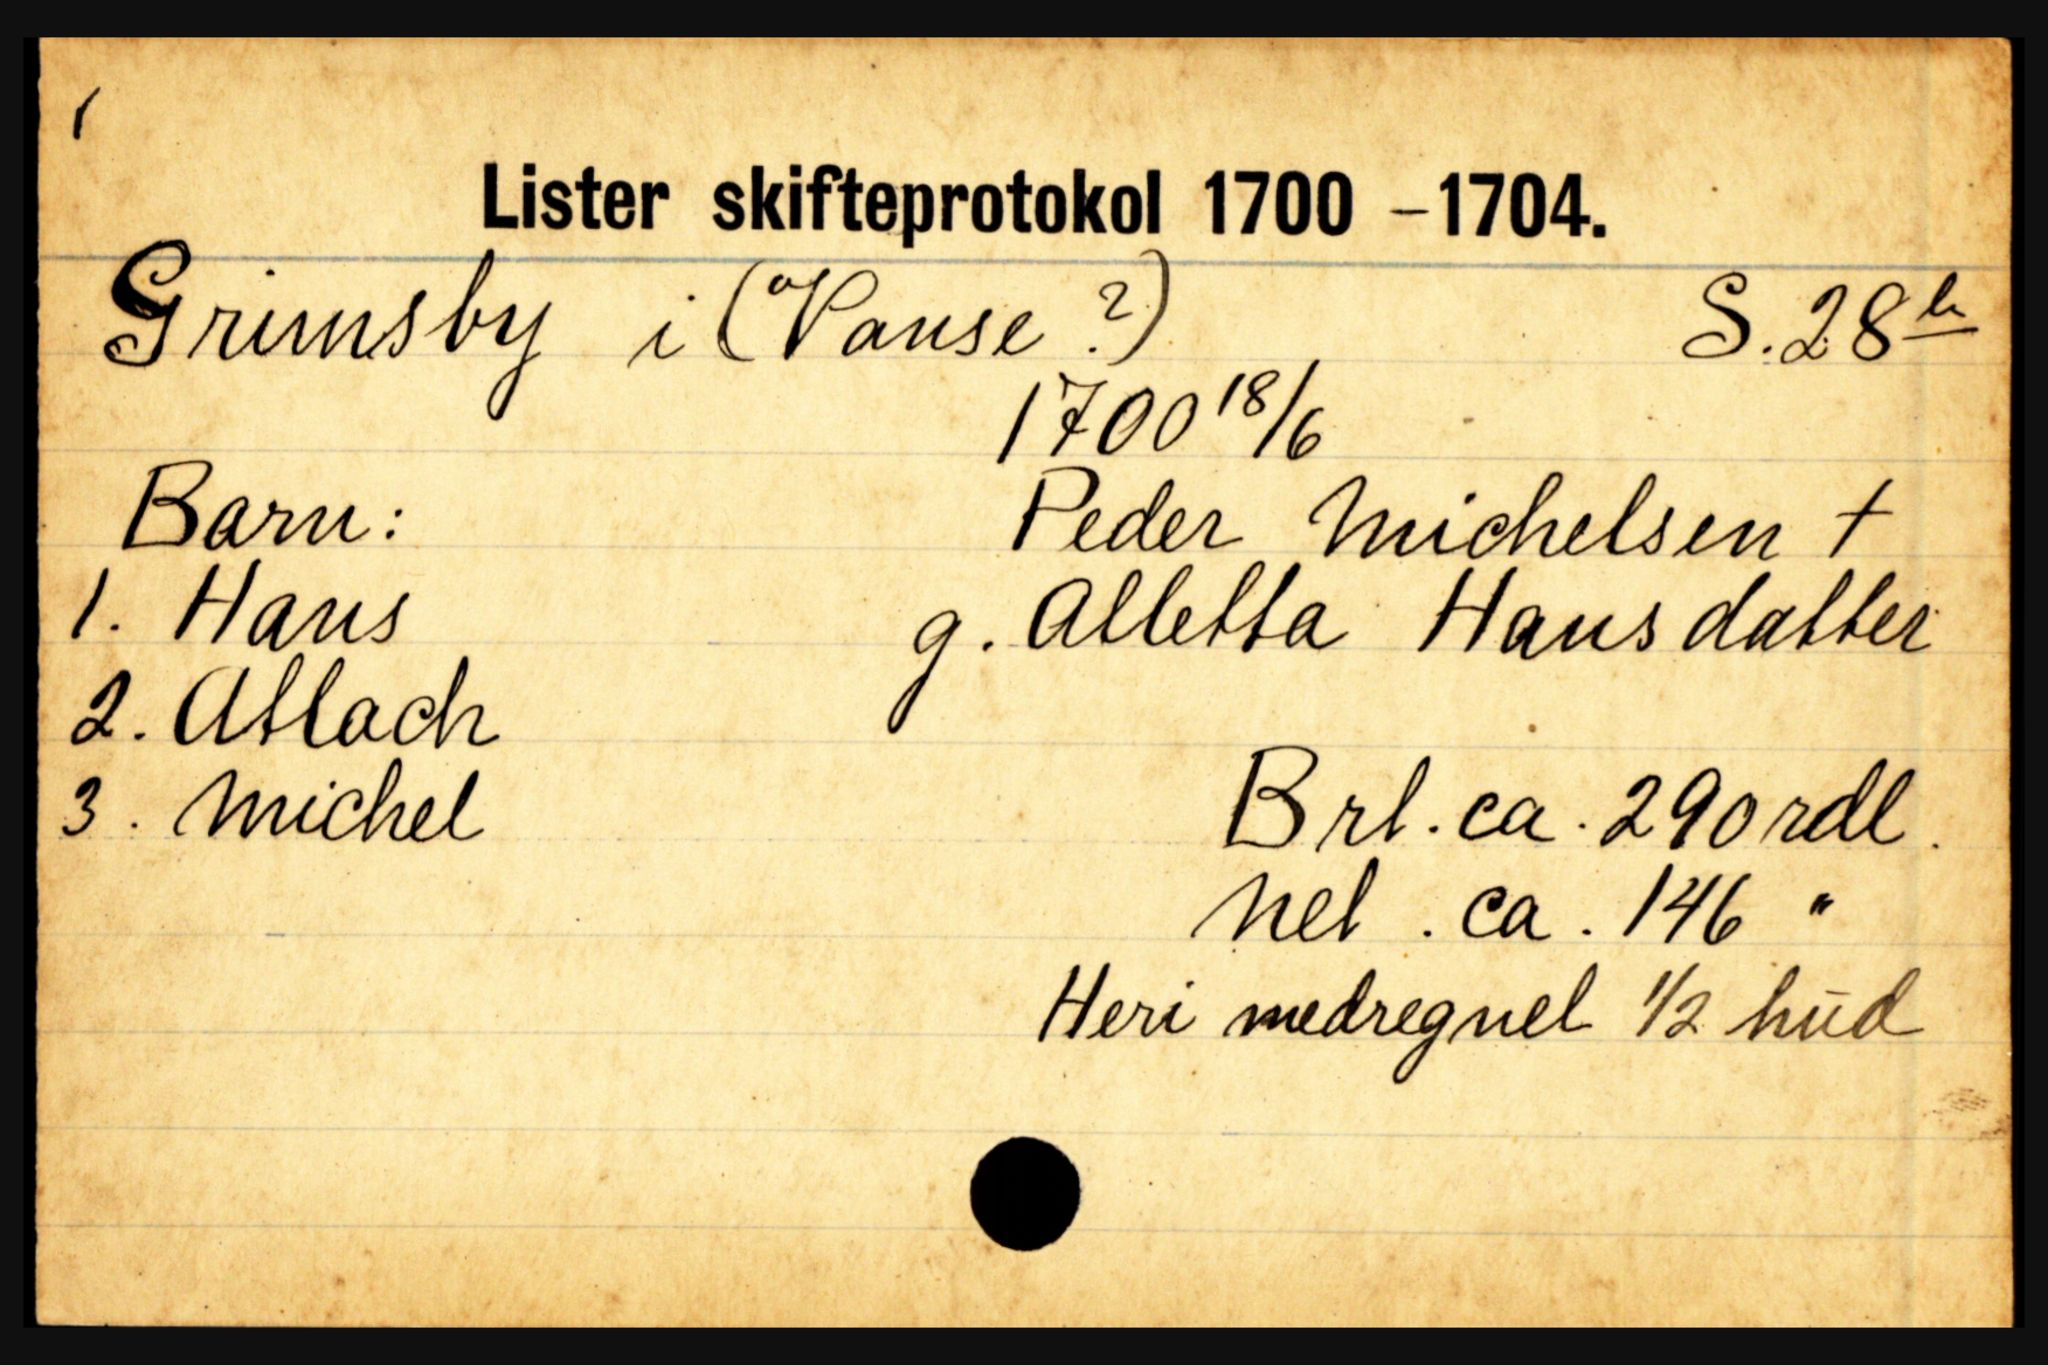 1
Lister skifteprotokol 1700 - 1704.
Grimsby i (Vanse ?) S. 28 b
1700 18/6
Barn: Peder Michelsen †
1. Hans g. Alletta Hansdatter
2. Atlach
3. Michel Brt. ca. 290 rdl.
Net. ca. 146 "
Heri medregnet 1/2 hud